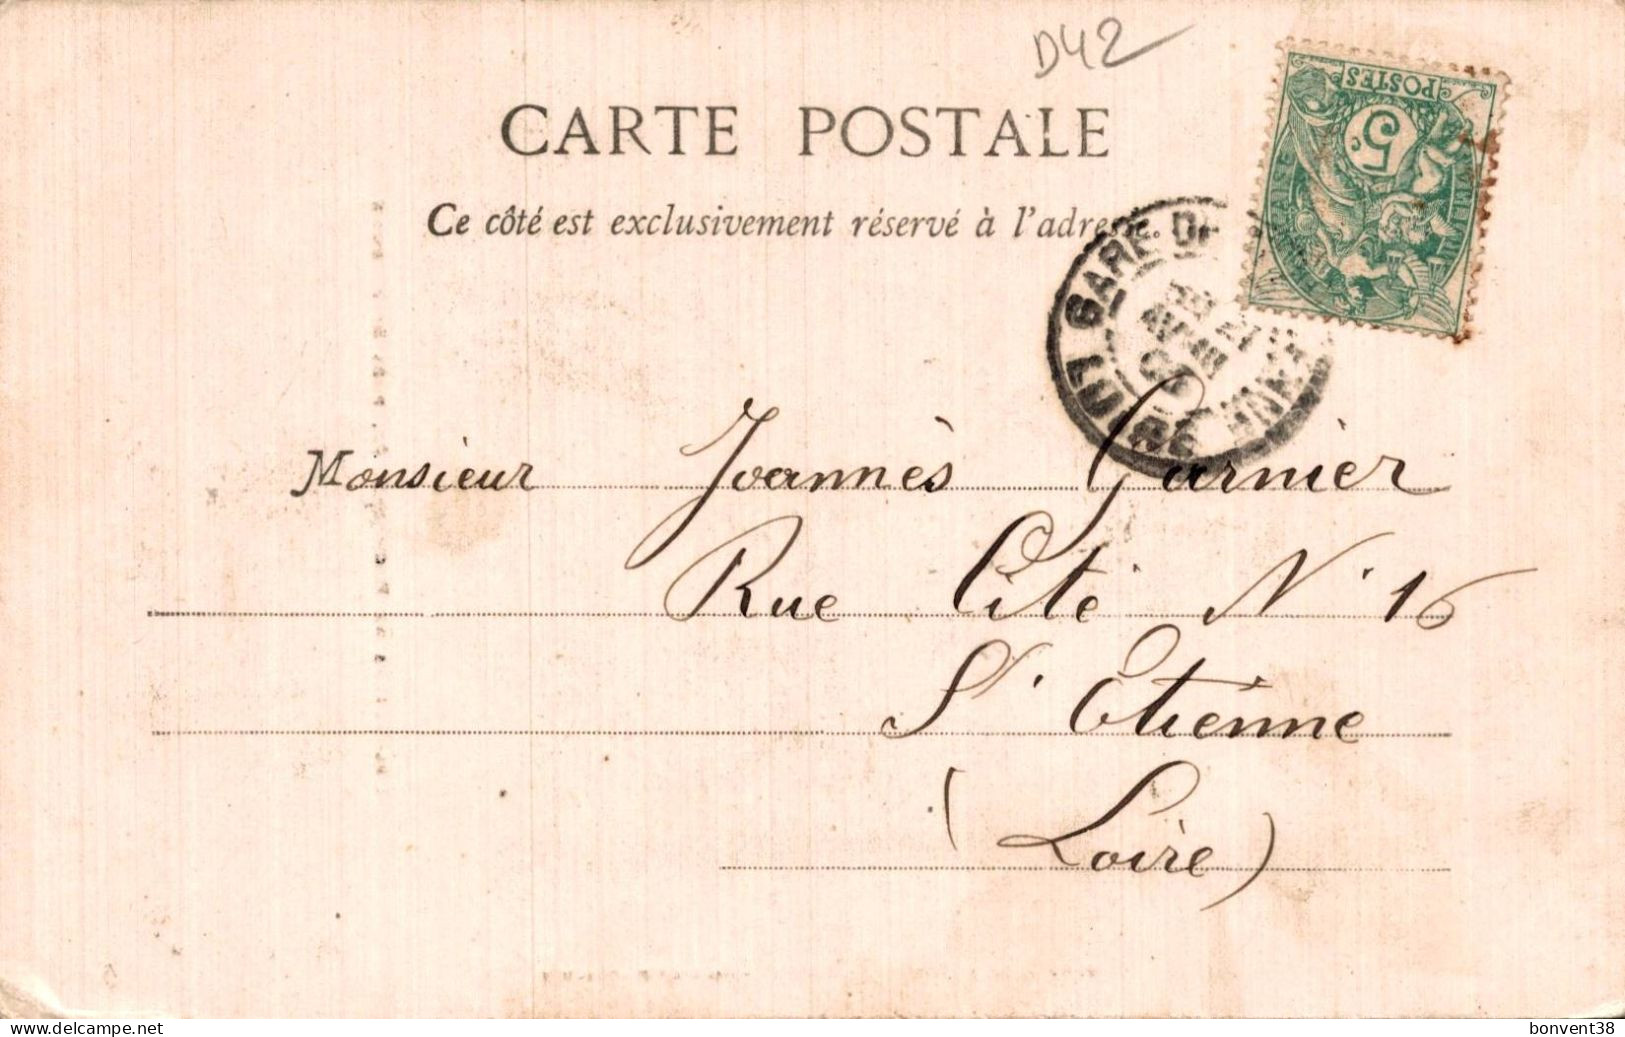 D42
CARTE POSTALE
Ce côté est exclusivement réservé à l'adresse.
POSTES
5c
GARE DE
Monsieur Joannès Garnier
Rue Cité N° 16
St Etienne
(Loire)
www.delcampe.net
bonvent38